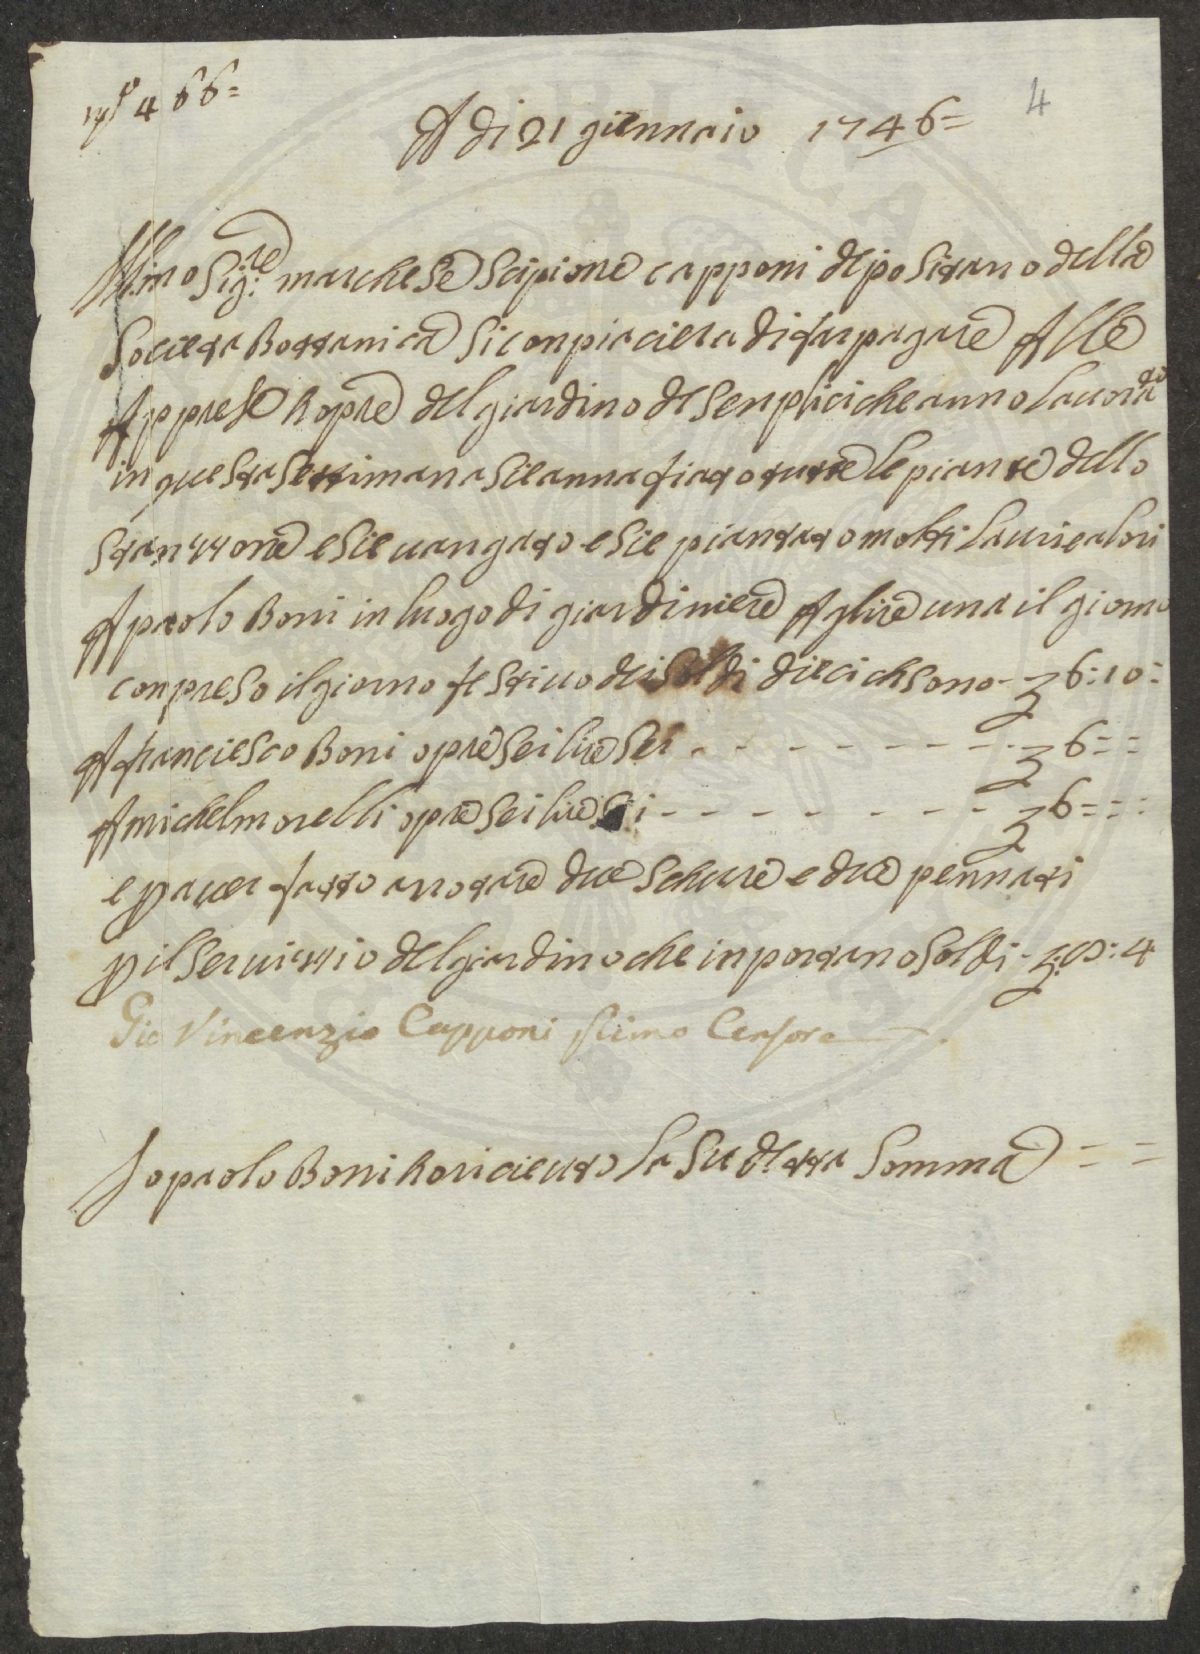 nº 466=
4
A di 21 giennaio 1746=
Ill.mo Sig:re marchese Scipione capponi depositaro della
Societa Bottanica Si conpiaciera di far pagare A lle
Appresso hopre del giardino de Senplici che anno lauorato
in questa Settimana Sie annafiato tutte le piante dello
Stanzzone e Sie uangato e Sie piantato molti lauri e alori
A paolo Boni in luogo di giardiniere A lire una il giorno
conpreso il giorno festiuo dei Soldi dieci che Sono - £ 6:10:
A franciesco Boni opre Sei lire Sei - - - - - - - - £ 6= =
A michel morelli opre Sei lire Sei - - - - - - - - £ 6= = :
e p auer fatto arrotare due Schure e due pennati
p il Seruizzio del giardino che inportano Soldi - £:00:4
Gio Vincenzio Capponi primo Censore
Io paolo Boni ho riceuto la Su detta Somma = =